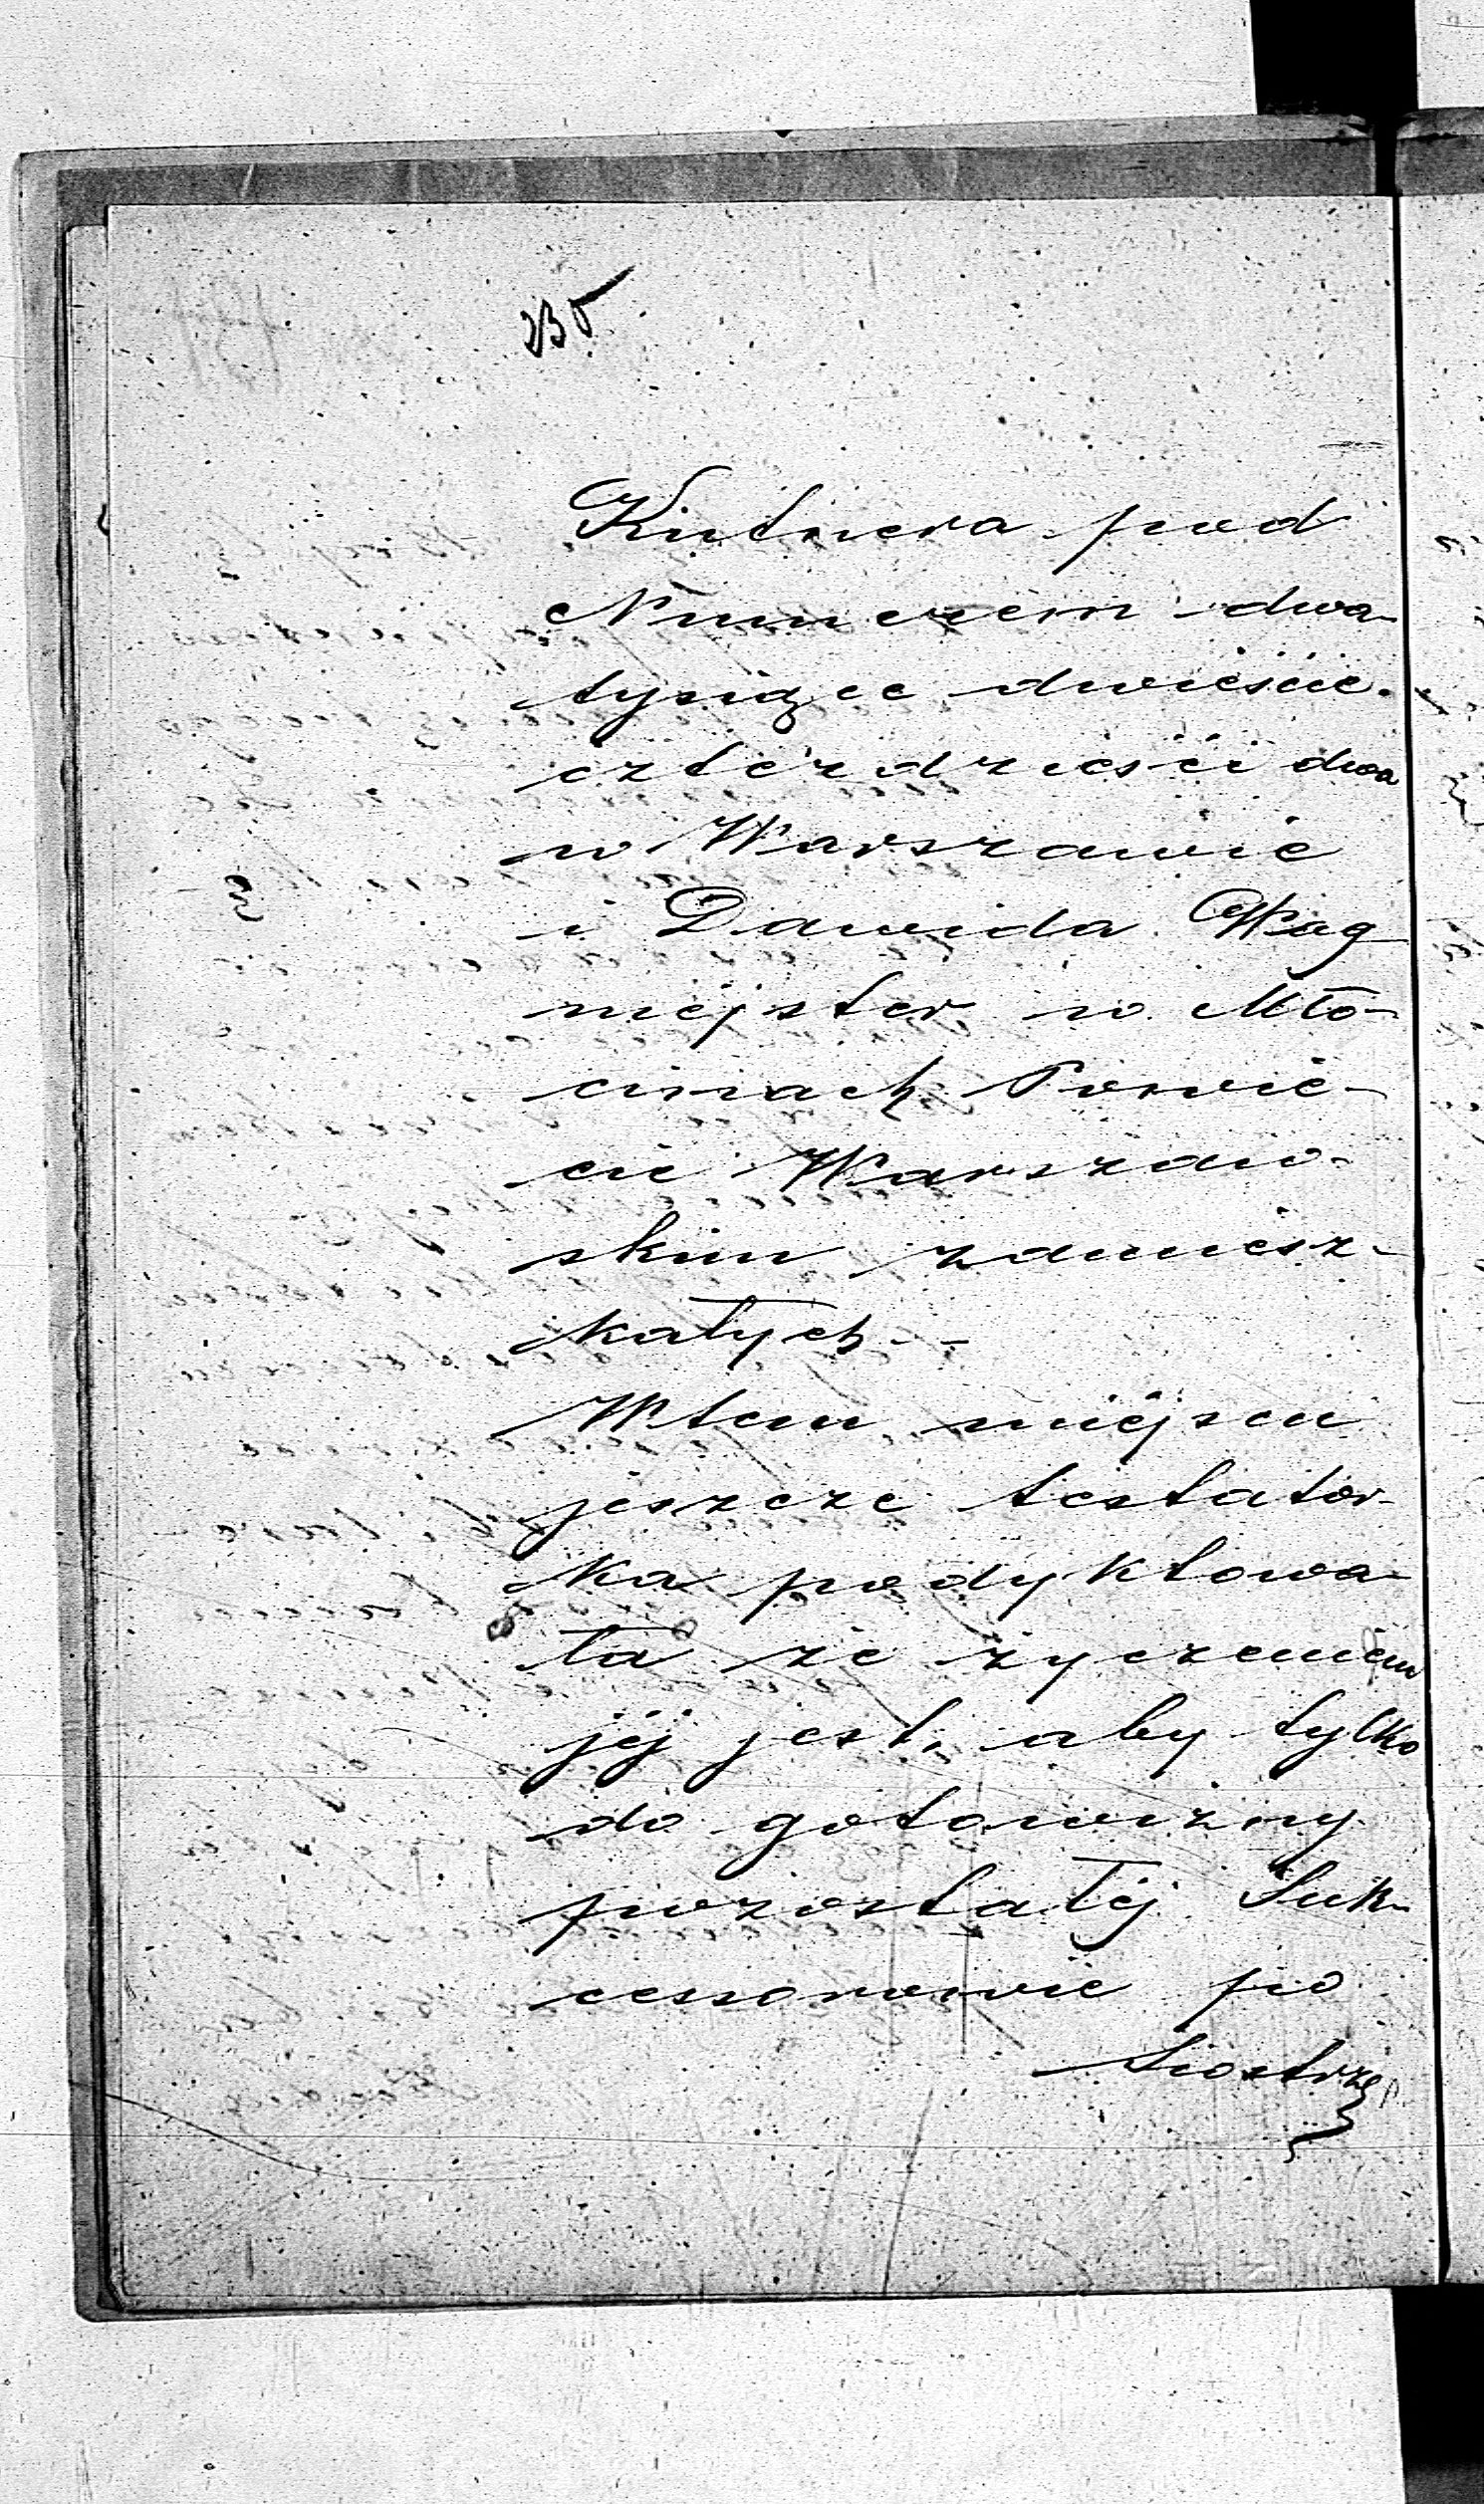 235
Kutnera pod
Numerem dwa
tysiące dwieście
czterdzieści dwa
w Warszawie
i Dawida Wag
mejster w Mło-
cinach Powie-
cie Warszaw-
skim zamiesz-
kałych. -
W tem miejscu
jeszcze testator-
ka podyktowa-
ła że życzeniem
jéj jest, aby tylko
do gotowizny
pozostałéj Suk-
cessorowie po
Siostrze